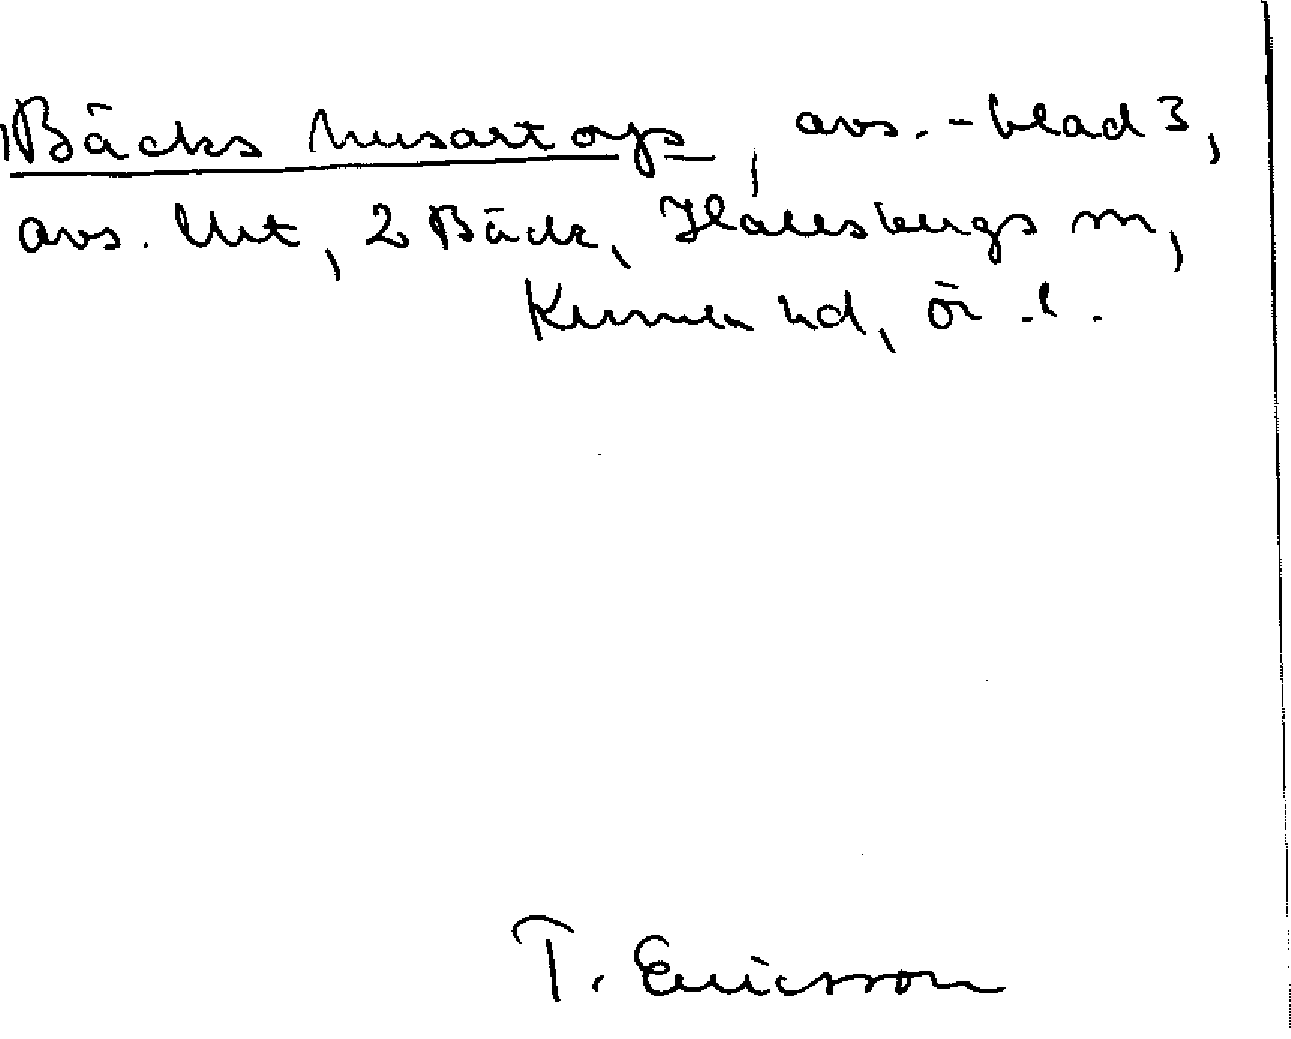 Bäcks husartorp, avs.-blad 3,
avs. Urt, 2 Bäck, Hallsbergs sn,
Kumla hd, Ör. l.
T. Ericsson